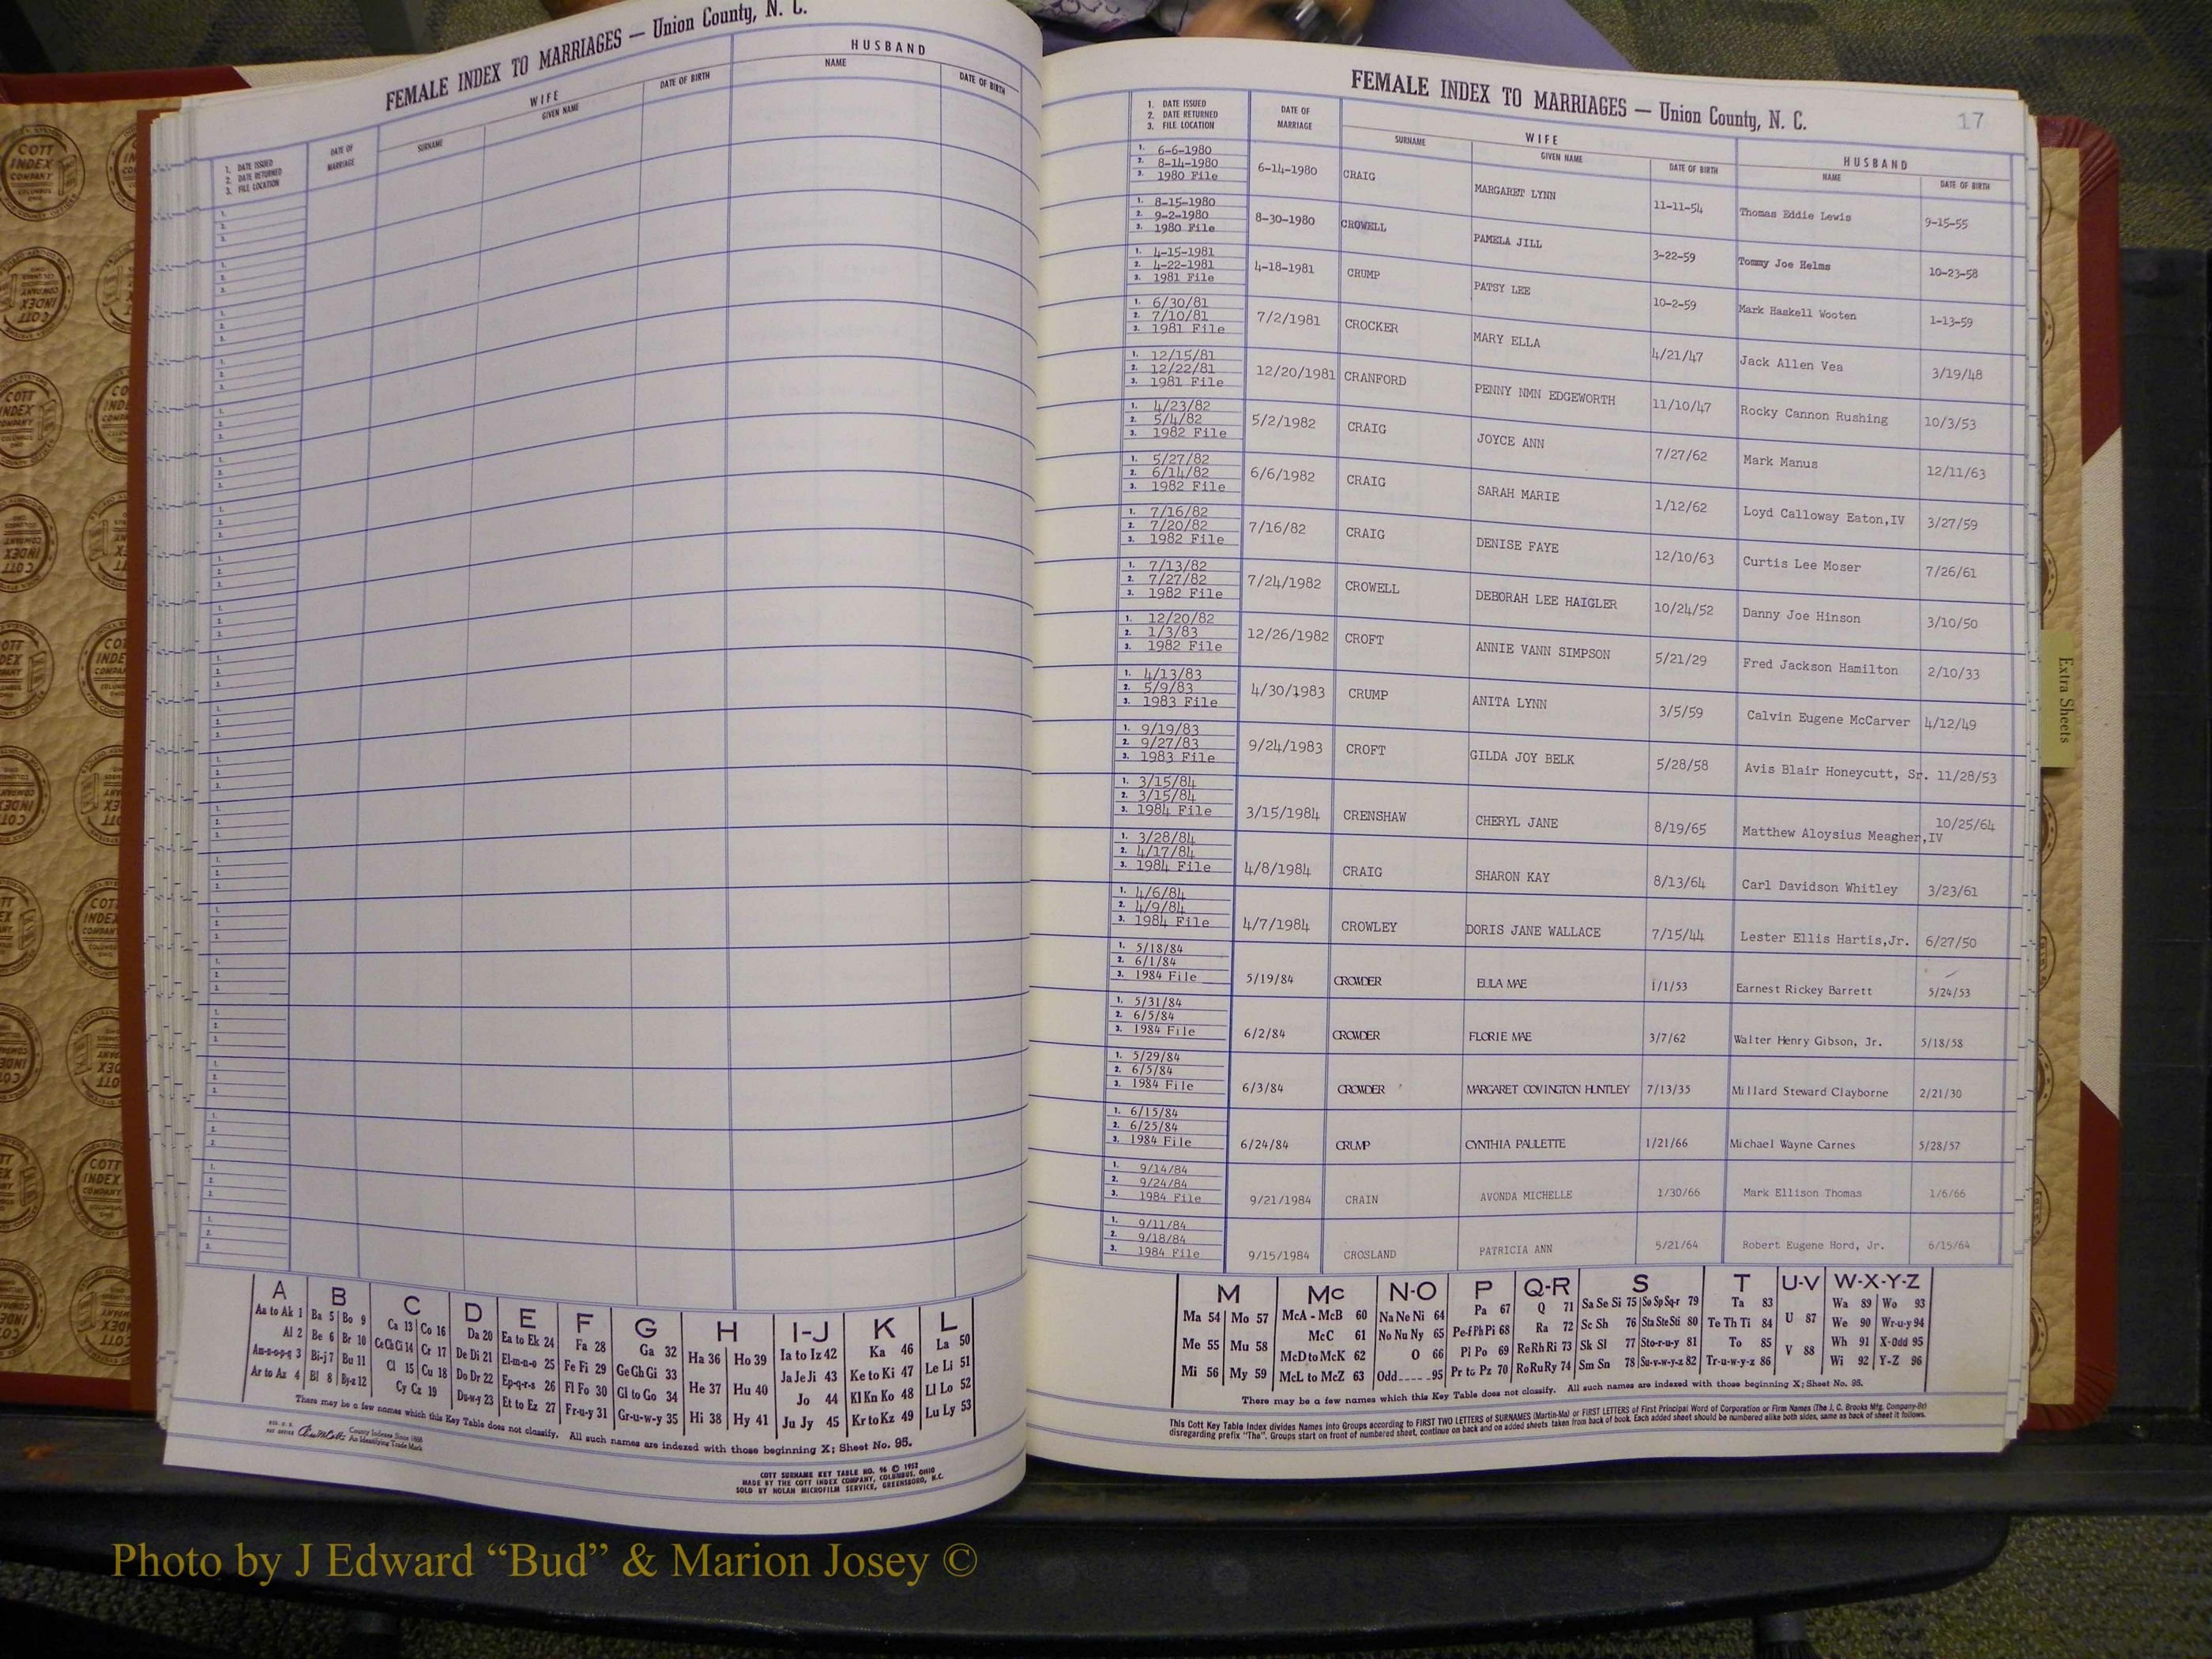 FEMALE INDEX TO MARRIAGES — Union County, N. C.
HUSBAND
WIFE
NAME
DATE OF BIRTH
GIVEN NAME
DATE OF BIRTH
SURNAME
DATE OF MARRIAGE
1. DATE ISSUED
2. DATE RETURNED
3. FILE LOCATION
A B C D E F G H I-J K L
Aa to Ak 1 Ba 5 Bo 9 Ca 13 Co 16 Da 20 Ea to Ek 24 Fa 28 Ga 32 Ha 36 Ho 39 Ia to Iz 42 Ka 46 La 50
Al 2 Be 6 Br 10 Ce Ch Ci 14 Cr 17 De Di 21 El-m-n-o 25 Fe Fi 29 Ge Gh Gi 33 He 37 Hu 40 Ja Je Ji 43 Ke to Ki 47 Le Li 51
Am-n-o-p-q 3 Bi-j 7 Bu 11 Cl 15 Cu 18 Do Dr 22 Ep-q-r-s 26 Fl Fo 30 Gl to Go 34 Hi 38 Hy 41 Jo 44 Kl Kn Ko 48 Ll Lo 52
Ar to Az 4 Bl 8 By-z 12 Cy Cz 19 Du-w-y 23 Et to Ez 27 Fr-u-y 31 Gr-u-w-y 35 Ju Jy 45 Kr to Kz 49 Lu Ly 53
There may be a few names which this Key Table does not classify. All such names are indexed with those beginning X; Sheet No. 95.
County Indexes Since 1888
An Identifying Trade Mark
COTT SURNAME KEY TABLE NO. 96 © 1952
MADE BY THE COTT INDEX COMPANY, COLUMBUS, OHIO
SOLD BY NOLAN MICROFILM SERVICE, GREENSBORO, N.C.
FEMALE INDEX TO MARRIAGES — Union County, N. C.
17
1. DATE ISSUED
2. DATE RETURNED
3. FILE LOCATION
DATE OF MARRIAGE
WIFE
SURNAME
GIVEN NAME
DATE OF BIRTH
HUSBAND
NAME
DATE OF BIRTH
1. 6-6-1980
2. 8-14-1980
3. 1980 File
6-14-1980 CRAIG MARGARET LYNN 11-11-54 Thomas Eddie Lewis 9-15-55
1. 8-15-1980
2. 9-2-1980
3. 1980 File
8-30-1980 CROWELL PAMELA JILL 3-22-59 Tommy Joe Helms 10-23-58
1. 4-15-1981
2. 4-22-1981
3. 1981 File
4-18-1981 CRUMP PATSY LEE 10-2-59 Mark Haskell Wooten 1-13-59
1. 6/30/81
2. 7/10/81
3. 1981 File
7/2/1981 CROCKER MARY ELLA 4/21/47 Jack Allen Vea 3/19/48
1. 12/15/81
2. 12/22/81
3. 1981 File
12/20/1981 CRANFORD PENNY NMN EDGEWORTH 11/10/47 Rocky Cannon Rushing 10/3/53
1. 4/23/82
2. 5/4/82
3. 1982 File
5/2/1982 CRAIG JOYCE ANN 7/27/62 Mark Manus 12/11/63
1. 5/27/82
2. 6/14/82
3. 1982 File
6/6/1982 CRAIG SARAH MARIE 1/12/62 Loyd Calloway Eaton,IV 3/27/59
1. 7/16/82
2. 7/20/82
3. 1982 File
7/16/82 CRAIG DENISE FAYE 12/10/63 Curtis Lee Moser 7/26/61
1. 7/13/82
2. 7/27/82
3. 1982 File
7/24/1982 CROWELL DEBORAH LEE HAIGLER 10/24/52 Danny Joe Hinson 3/10/50
1. 12/20/82
2. 1/3/83
3. 1982 File
12/26/1982 CROFT ANNIE VANN SIMPSON 5/21/29 Fred Jackson Hamilton 2/10/33
1. 4/13/83
2. 5/9/83
3. 1983 File
4/30/1983 CRUMP ANITA LYNN 3/5/59 Calvin Eugene McCarver 4/12/49
1. 9/19/83
2. 9/27/83
3. 1983 File
9/24/1983 CROFT GILDA JOY BELK 5/28/58 Avis Blair Honeycutt, Sr. 11/28/53
1. 3/15/84
2. 3/15/84
3. 1984 File
3/15/1984 CRENSHAW CHERYL JANE 8/19/65 Matthew Aloysius Meagher,IV 10/25/64
1. 3/28/84
2. 4/17/84
3. 1984 File
4/8/1984 CRAIG SHARON KAY 8/13/64 Carl Davidson Whitley 3/23/61
1. 4/6/84
2. 4/9/84
3. 1984 File
4/7/1984 CROWLEY DORIS JANE WALLACE 7/15/44 Lester Ellis Hartis,Jr. 6/27/50
1. 5/18/84
2. 6/1/84
3. 1984 File
5/19/84 CROWDER EULA MAE 1/1/53 Earnest Rickey Barrett 5/24/53
1. 5/31/84
2. 6/5/84
3. 1984 File
6/2/84 CROWDER FLORIE MAE 3/7/62 Walter Henry Gibson, Jr. 5/18/58
1. 5/29/84
2. 6/5/84
3. 1984 File
6/3/84 CROWDER MARGARET COVINGTON HUNTLEY 7/13/35 Millard Steward Clayborne 2/21/30
1. 6/15/84
2. 6/25/84
3. 1984 File
6/24/84 CRUMP CYNTHIA PAULETTE 1/21/66 Michael Wayne Carnes 5/28/57
1. 9/14/84
2. 9/24/84
3. 1984 File
9/21/1984 CRAIN AVONDA MICHELLE 1/30/66 Mark Ellison Thomas 1/6/66
1. 9/11/84
2. 9/18/84
3. 1984 File
9/15/1984 CROSLAND PATRICIA ANN 5/21/64 Robert Eugene Hord, Jr. 6/15/64
M Mc N-O P Q-R S T U-V W-X-Y-Z
Ma 54 Mo 57 McA - McB 60 Na Ne Ni 64 Pa 67 Q 71 Sa Se Si 75 So Sp Sq-r 79 Ta 83 U 87 Wa 89 Wo 93
Me 55 Mu 58 McC 61 No Nu Ny 65 Pe-f Ph Pi 68 Ra 72 Sc Sh 76 Sta Ste Sti 80 Te Th Ti 84 V 88 We 90 Wr-u-y 94
McD to McK 62 O 66 Pl Po 69 Re Rh Ri 73 Sk Sl 77 Sto-r-u-y 81 To 85 Wh 91 X-Odd 95
Mi 56 My 59 McL to McZ 63 Odd 95 Pr to Pz 70 Ro Ru Ry 74 Sm Sn 78 Su-v-w-y-z 82 Tr-u-w-y-z 86 Wi 92 Y-Z 96
There may be a few names which this Key Table does not classify. All such names are indexed with those beginning X; Sheet No. 95.
This Cott Key Table Index divides Names into Groups according to FIRST TWO LETTERS of SURNAMES (Martin-Ma) or FIRST LETTERS of First Principal Word of Corporation or Firm Names (The J. C. Brooks Mfg. Company-Br)
disregarding prefix "The". Groups start on front of numbered sheet, continue on back and on added sheets taken from back of book. Each added sheet should be numbered alike both sides, same as back of sheet it follows.
Extra Sheets
COTT INDEX COMPANY
Photo by J Edward “Bud” & Marion Josey ©